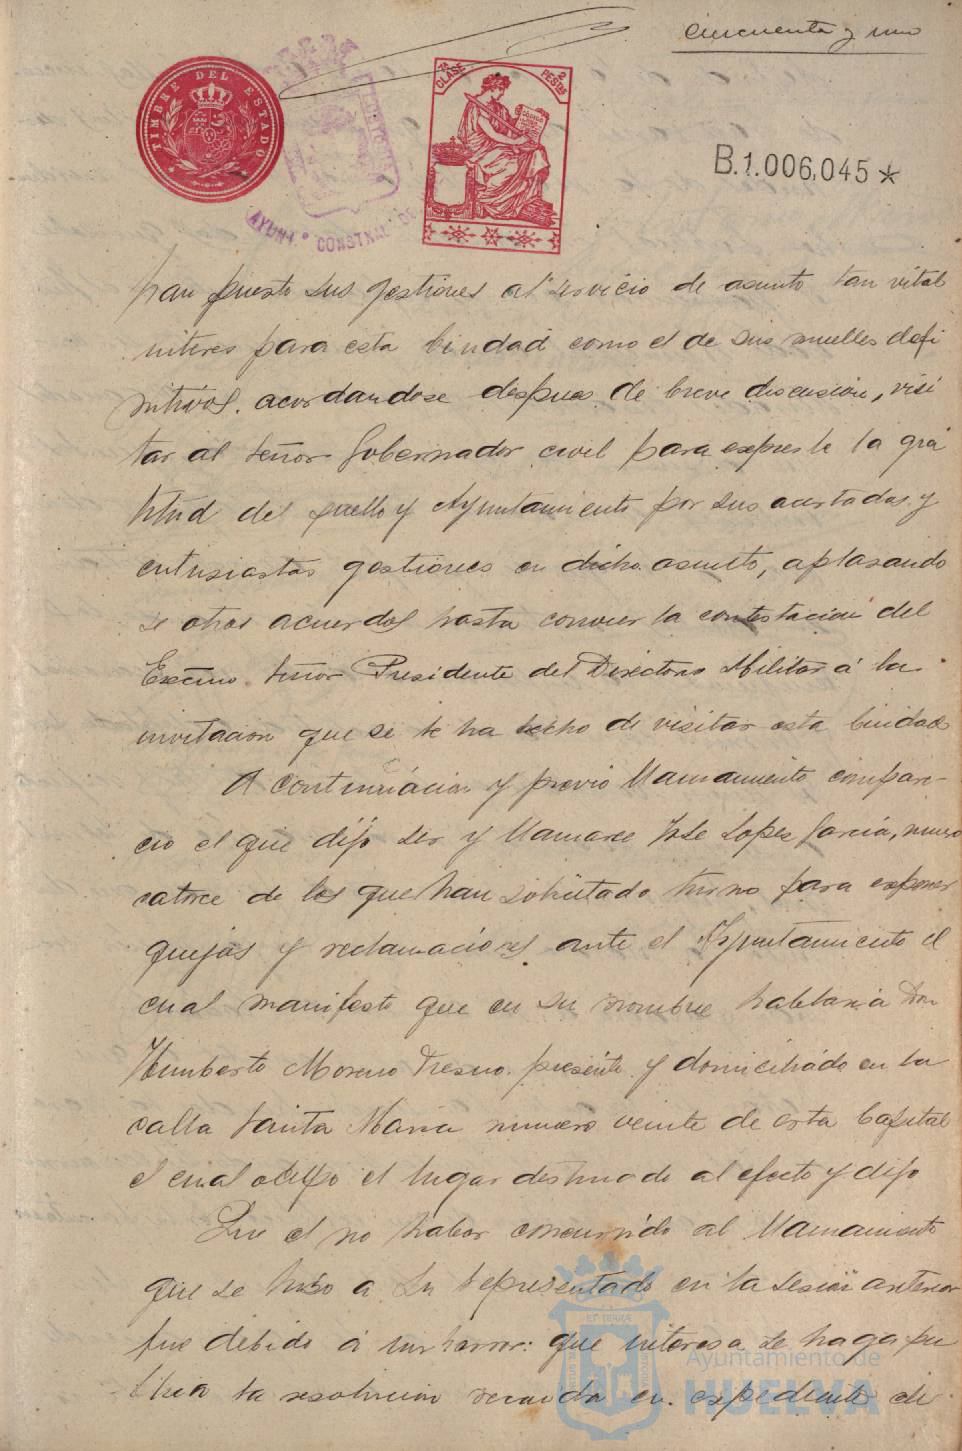 cincuenta y uno
TIMBRE DEL ESTADO
7ª CLASE
2 PESTAS
B.1.006,045*
AYUNTº CONSTNAL DE
han puesto sus gestiones al servicio de asunto tan vital
interes para esta Ciudad como el de sus muelles defi
nitivos. acordandose despues de breve discusion, visi
tar al Señor Gobernador civil para expresle la gra
titud del pueblo y Ayuntamiento por sus acertadas y
entusiastas gestiones en dicho asunto, aplasando
se otros acuerdos hasta conocer la contestación del
Excmo. Señor Presidente del Directorio Militar á la
invitacion que se le ha hecho de visitar esta Ciudad
A continuacion y previo llamamiento compare-
cio el que dijo ser y llamarse José Lopez Garcia, numero
catorce de los que han solicitado turno para exponer
quejas y reclamaciones ante el Ayuntamiento el
cual manifesto que en su nombre hablaria Don
Humberto Moreno Fresno. presente y domiciliado en la
calla Santa Maria numero veinte de esta Capital
el cual ocupo el lugar destinado al efecto y dijo
Que el no haber concurrido al llamamiento
que se hizo a su representado en la sesion anterior
fue debido á un herror: que interesa se haga pu
blica la resolucion recaida en expediente de
Ayuntamiento de
HUELVA